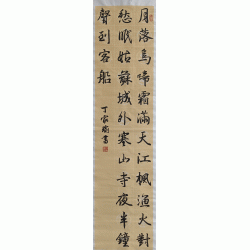 月落烏啼霜滿天江楓漁火對
愁眠姑蘇城外寒山寺夜半鐘
聲到客船
丁家書